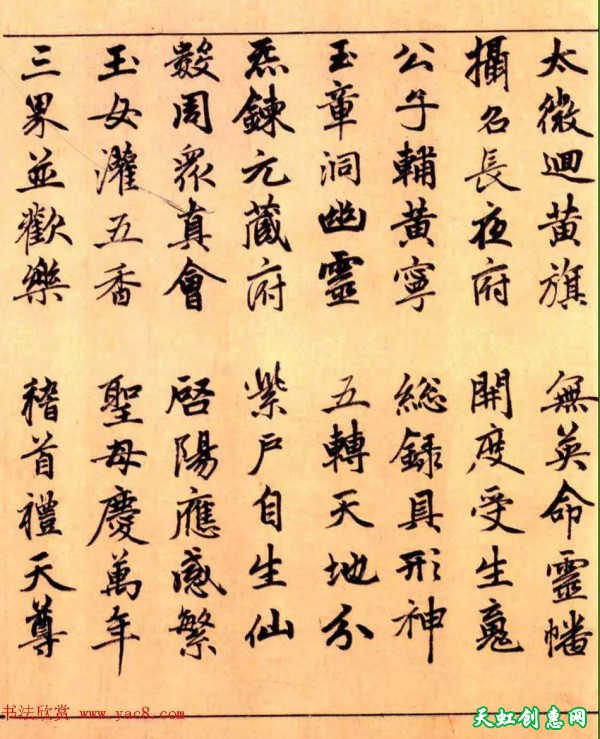 太微迴黃旗 無英命靈幡
攝名長夜府 開度受生魂
公子輔黃寧 総録具形神
玉章洞幽靈 五轉天地分
炁鍊元藏府 紫戶自生仙
數周衆真會 啓陽應感繁
玉女灌五香 聖母慶萬年
三界並歡樂 稽首禮天尊
书法欣赏 www.yac8.com
天虹创惠网